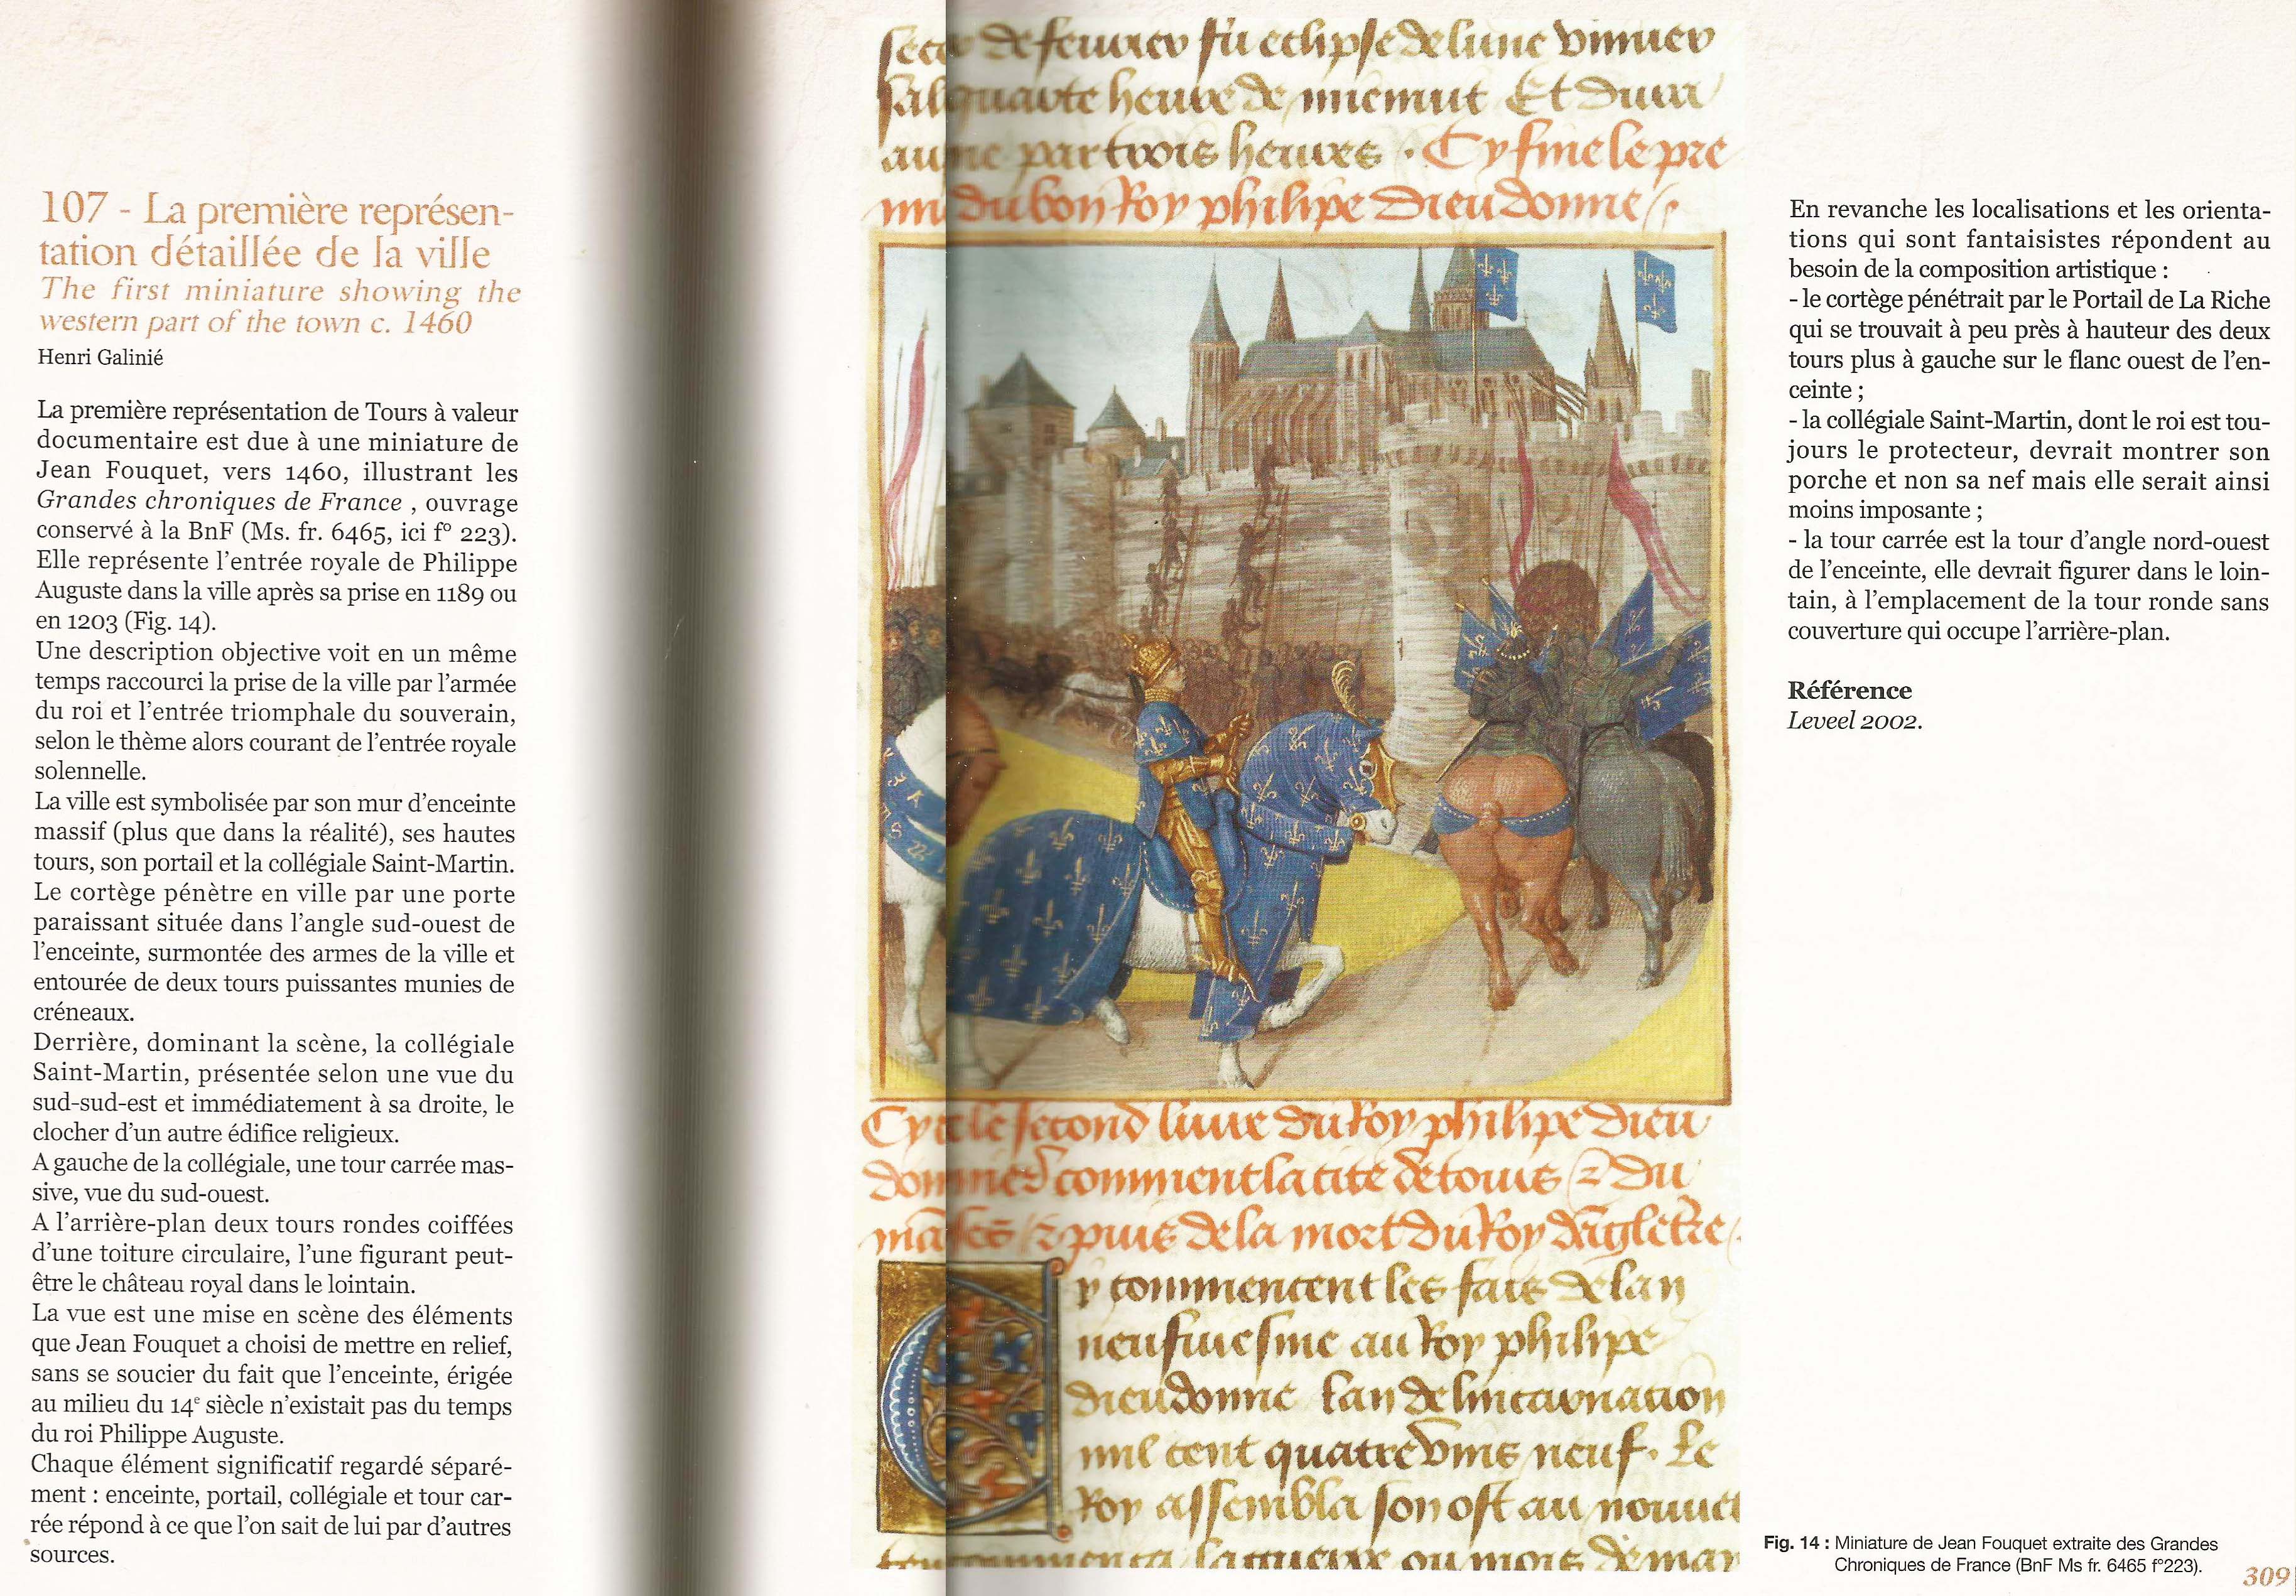 107 - La première représen-
tation détaillée de la ville
The first miniature showing the
western part of the town c. 1460
Henri Galinié
La première représentation de Tours à valeur
documentaire est due à une miniature de
Jean Fouquet, vers 1460, illustrant les
Grandes chroniques de France , ouvrage
conservé à la BnF (Ms. fr. 6465, ici f° 223).
Elle représente l'entrée royale de Philippe
Auguste dans la ville après sa prise en 1189 ou
en 1203 (Fig. 14).
Une description objective voit en un même
temps raccourci la prise de la ville par l'armée
du roi et l'entrée triomphale du souverain,
selon le thème alors courant de l'entrée royale
solennelle.
La ville est symbolisée par son mur d'enceinte
massif (plus que dans la réalité), ses hautes
tours, son portail et la collégiale Saint-Martin.
Le cortège pénètre en ville par une porte
paraissant située dans l'angle sud-ouest de
l'enceinte, surmontée des armes de la ville et
entourée de deux tours puissantes munies de
créneaux.
Derrière, dominant la scène, la collégiale
Saint-Martin, présentée selon une vue du
sud-sud-est et immédiatement à sa droite, le
clocher d'un autre édifice religieux.
A gauche de la collégiale, une tour carrée mas-
sive, vue du sud-ouest.
A l'arrière-plan deux tours rondes coiffées
d'une toiture circulaire, l'une figurant peut-
être le château royal dans le lointain.
La vue est une mise en scène des éléments
que Jean Fouquet a choisi de mettre en relief,
sans se soucier du fait que l'enceinte, érigée
au milieu du 14e siècle n'existait pas du temps
du roi Philippe Auguste.
Chaque élément significatif regardé séparé-
ment : enceinte, portail, collégiale et tour car-
rée répond à ce que l'on sait de lui par d'autres
sources.
de feurier fu eclipse de lune
quarte heure de mienuit Et dura
par trois heures . Cy fine le pre
du bon Roy philipe Dieudonne
Cy le second livre du Roy philipe Dieu
donne comment la cite de tours du
puis de la mort du Roy
Cy commencent les fais de lan
neufuiesme au Roy philipe
dieudonne lan de lincarnation
mil cent quatre vins neuf. Le
Roy assembla son ost au
En revanche les localisations et les orienta-
tions qui sont fantaisistes répondent au
besoin de la composition artistique :
- le cortège pénétrait par le Portail de La Riche
qui se trouvait à peu près à hauteur des deux
tours plus à gauche sur le flanc ouest de l'en-
ceinte ;
- la collégiale Saint-Martin, dont le roi est tou-
jours le protecteur, devrait montrer son
porche et non sa nef mais elle serait ainsi
moins imposante ;
- la tour carrée est la tour d'angle nord-ouest
de l'enceinte, elle devrait figurer dans le loin-
tain, à l'emplacement de la tour ronde sans
couverture qui occupe l'arrière-plan.
Référence
Leveel 2002.
Fig. 14 : Miniature de Jean Fouquet extraite des Grandes
Chroniques de France (BnF Ms fr. 6465 f°223).
309